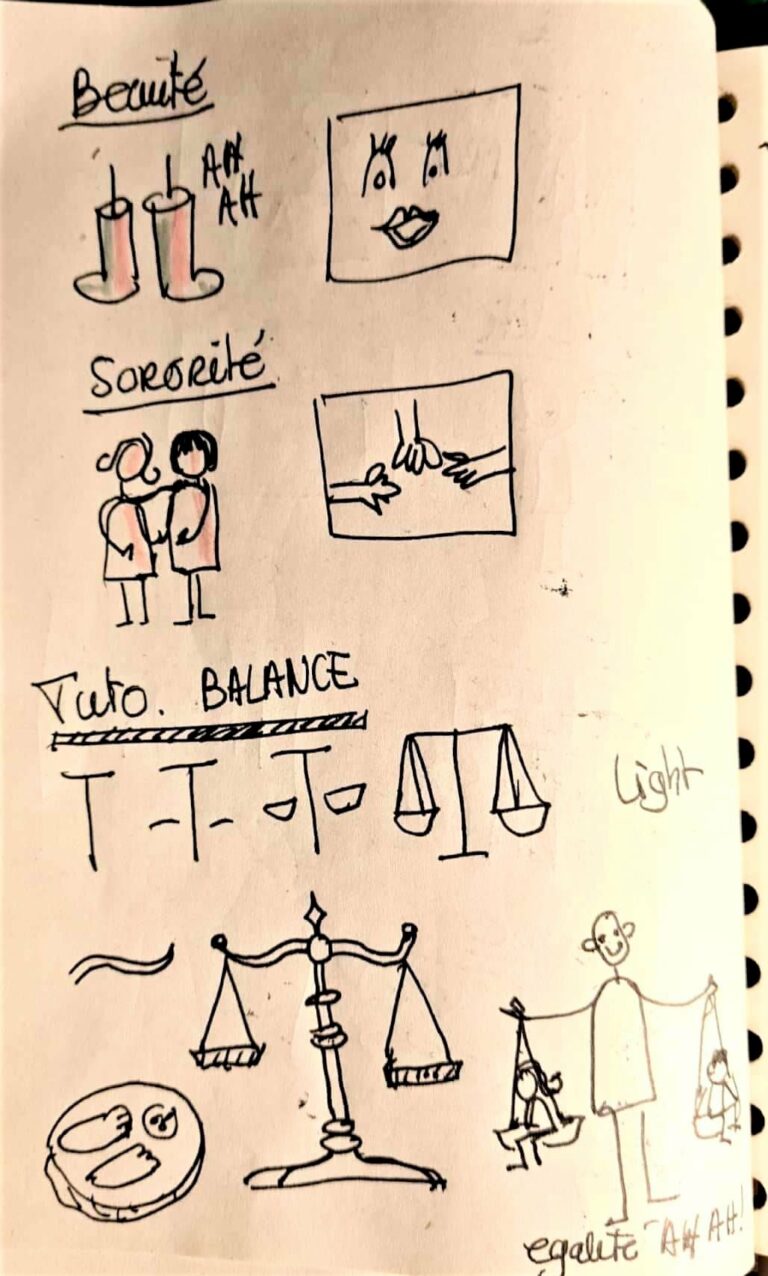 Beauté
AH
AH
Sororité
Tuto. BALANCE
Light
egalité AH AH!